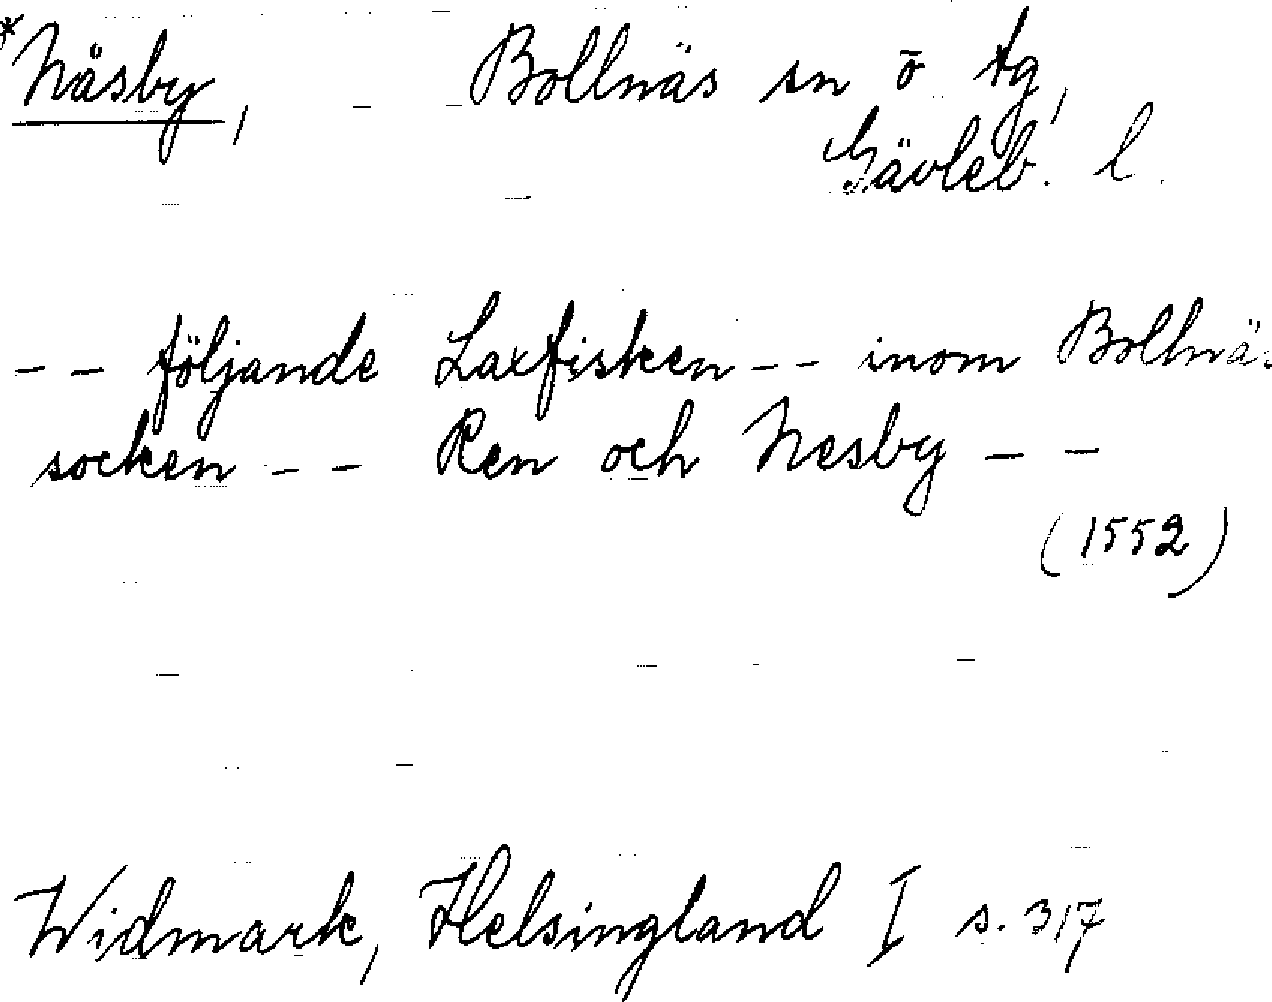 *Näsby, Bollnäs sn o tg,
Gävleb. l.
-- följande Laxfisken -- inom Bollnäs
socken -- Ren och Nesby --
(1552)
Widmark, Helsingland I s. 317